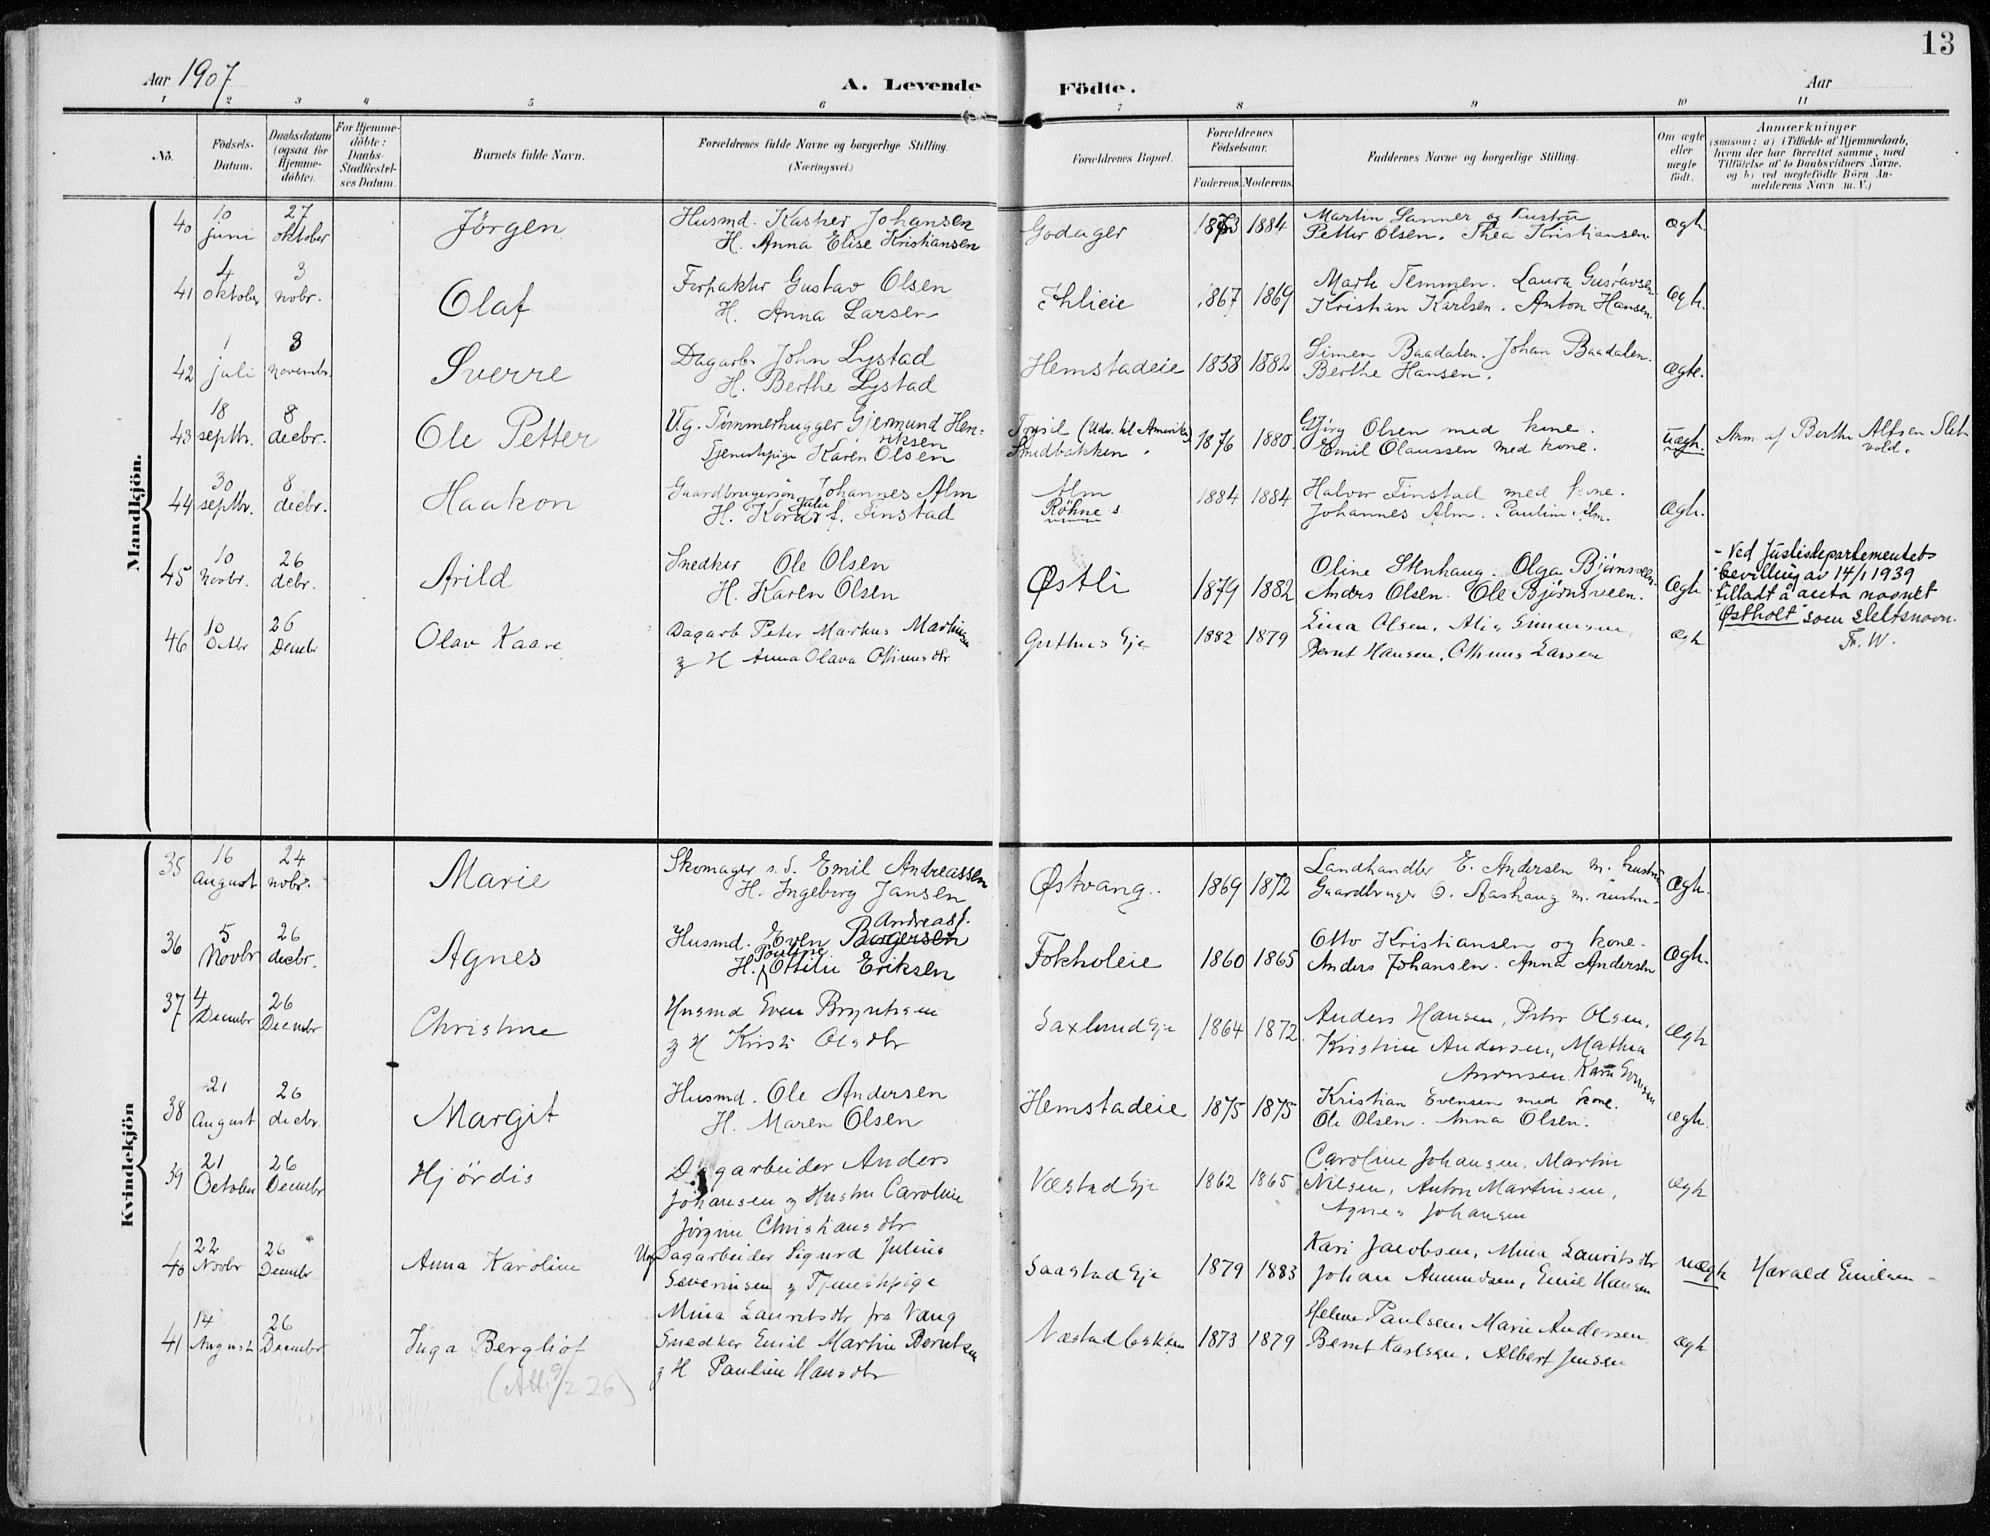 13
Aar 1907
A. Levende Födte.
Aar
1 2 3 4 5 6 7 8 9 10 11
No.
Födsels-Datum.
Daabsdatum (ogsaa for Hjemme-döbte).
For Hjemme-döbte: Daabs-Stadfæstel-ses Datum.
Barnets fulde Navn.
Forældrenes fulde Navne og borgerlige Stilling.
(Næringsvei.)
Forældrenes Bopæl.
Forældrenes Födselsaar.
Faderens. Moderens.
Faddernes Navne og borgerlige Stilling.
Om ægte eller uægte födt.
Anmærkninger
(saasom: a) i Tilfælde af Hjemmedaab,
hvem der har forrettet samme, med
Tilföielse af to Daabsvidners Navne,
og b) ved uægtefödte Börn An-
melderens Navn m. V.)
Mandkjön.
40 10 juni 27 oktober Jørgen
Husmd. Kasper Johansen
H. Anna Elise Kristiansen
Godager 1873 1884
Martin Sanner og hustru
Petter Olsen. Thea Kristiansen.
Ægh.
41 4 oktober 3 nobr. Olaf
Forpakter Gustav Olsen
H. Anna Larsen
Ihlieie 1867 1869
Marte Temmen. Laura Gustavsen
Kristian Karlsen. Anton Hansen.
Ægh.
42 1 juli 8 novembr. Sverre
Dagarb. John Lystad
H. Berthe Lystad
Hemstadeie 1858 1882
Simen Baadalen. Johan Baadalen.
Berthe Hansen.
Ægte.
43 18 septbr. 8 decbr. Ole Petter
Ug. Tømmerhugger Gjermund Hen-
riksen
Tjenestepige Karen Olsen
Trysil (Udv. til Amerika)
Smedbakken. 1876 1880.
Gjörg Olsen med kone.
Emil Olaussen med kone.
Uægh. Anm. af Berthe Alfsen Slet-
vold.
44 30 septbr. 8 decbr. Haakon
Gaardbrugersøn Johannes Alm
H. Kora Julie f. Finstad
Alm
Röhne s. 1884 1884
Halvor Finstad med kone.
Johannes Alm. Pauline Alm.
Ægh.
45 10 Novbr. 26 decbr. Arild
Snedker Ole Olsen
H. Karen Olsen
Østli 1879 1882
Oline Stenhaug. Olga Bjørnsveen.
Anders Olsen. Ole Bjørnsveen.
Ægh
- Ved Justisdepartementets
bevilling av 14/1 1939
tilladt å anta navnet
"Østholt" som slektsnavn.
Fr. W.
46 10 Octbr 26 Decmbr Olav Kaare
Dagarb Peter Markus Martinsen
og H Anna Olava Othinusdtr
Guthus Eje 1882 1879
Lina Olsen, Simensen,
Bernt Hansen, Othinus Larsen
Ægh
Kvindekjön
35 16 August 24 nobr. Marie
Skomager s.d. Emil Andreassen
H. Ingeborg Jansen
Østvang.. 1869 1872
Landhandler E. Andersen m. hustru
Gaardbruger O. Aashaug m. hustru
Ægh.
36 5 Novbr 26 decbr. Agnes
Andreasf.
Husmd. Even Borgersen
H. Pouline Ottilie Eriksen
Fokholeie 1860 1865
Otto Kristiansen og kone.
Anders Johansen. Anna Andersen
Ægh.
37 4 Decmbr 26 Decmbr Christine
Husmd Even Bryntesen
og H Kirsti Olsdtr
Saxlund Eje 1864 1872
Anders Hansen, Peter Olsen,
Kristine Andersen, Mathea
Aronsen. Karen Evensen
Ægh
38 21 August 26 decbr. Margit
Husmd. Ole Andersen
H. Maren Olsen
Hemstadeie 1875 1875
Kristian Evensen med kone.
Ole Olsen. Anna Olsen.
Ægh.
39 21 October 26 Decmbr Hjørdis
Dagarbeider Anders
Johansen og Hustru Caroline
Jørgine Christiansdtr
Væstad Eje 1862 1865
Caroline Johansen, Martin
Nilsen, Anton Martinsen,
Agnes Johansen
Ægh
40 22 Novbr 26 Decmbr Anna Karoline
Ug Dagarbeider Sigurd Julius
Severinsen og Tjenestepige
Mina Lauritsdtr fra Vang
Saastad Eje 1879 1883
Kari Jacobsen, Mina Lauritsdtr
Johan Amundsen, Emil Hansen
Uægh Harald Emilsen
41 14 August 26 Decmbr Inga Berghof
(Att. 9/2 26)
Snedker Emil Martin Berntsen
og H Pauline Hansdtr
Næstadbakken 1873 1879
Helene Paulsen, Marie Andersen
Bernt Karlsen, Albert Jensen
Ægh